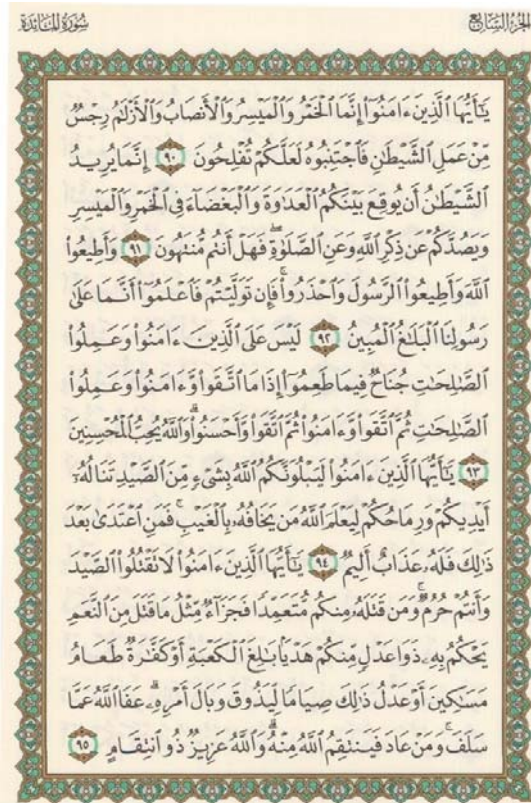 سُورَةُ المَائدة
الجُزْءُ السَّابِعُ
يَٰٓأَيُّهَا ٱلَّذِينَ ءَامَنُوٓا۟ إِنَّمَا ٱلْخَمْرُ وَٱلْمَيْسِرُ وَٱلْأَنصَابُ وَٱلْأَزْلَٰمُ رِجْسٌ
مِّنْ عَمَلِ ٱلشَّيْطَٰنِ فَٱجْتَنِبُوهُ لَعَلَّكُمْ تُفْلِحُونَ ٩٠ إِنَّمَا يُرِيدُ
ٱلشَّيْطَٰنُ أَن يُوقِعَ بَيْنَكُمُ ٱلْعَدَٰوَةَ وَٱلْبَغْضَآءَ فِى ٱلْخَمْرِ وَٱلْمَيْسِرِ
وَيَصُدَّكُمْ عَن ذِكْرِ ٱللَّهِ وَعَنِ ٱلصَّلَوٰةِ ۖ فَهَلْ أَنتُم مُّنتَهُونَ ٩١ وَأَطِيعُوا۟
ٱللَّهَ وَأَطِيعُوا۟ ٱلرَّسُولَ وَٱحْذَرُوا۟ ۚ فَإِن تَوَلَّيْتُمْ فَٱعْلَمُوٓا۟ أَنَّمَا عَلَىٰ
رَسُولِنَا ٱلْبَلَٰغُ ٱلْمُبِينُ ٩٢ لَيْسَ عَلَى ٱلَّذِينَ ءَامَنُوا۟ وَعَمِلُوا۟
ٱلصَّٰلِحَٰتِ جُنَاحٌ فِيمَا طَعِمُوٓا۟ إِذَا مَا ٱتَّقَوا۟ وَّءَامَنُوا۟ وَعَمِلُوا۟
ٱلصَّٰلِحَٰتِ ثُمَّ ٱتَّقَوا۟ وَّءَامَنُوا۟ ثُمَّ ٱتَّقَوا۟ وَّأَحْسَنُوا۟ ۗ وَٱللَّهُ يُحِبُّ ٱلْمُحْسِنِينَ
٩٣ يَٰٓأَيُّهَا ٱلَّذِينَ ءَامَنُوا۟ لَيَبْلُوَنَّكُمُ ٱللَّهُ بِشَىْءٍ مِّنَ ٱلصَّيْدِ تَنَالُهُۥٓ
أَيْدِيكُمْ وَرِمَاحُكُمْ لِيَعْلَمَ ٱللَّهُ مَن يَخَافُهُۥ بِٱلْغَيْبِ ۚ فَمَنِ ٱعْتَدَىٰ بَعْدَ
ذَٰلِكَ فَلَهُۥ عَذَابٌ أَلِيمٌ ٩٤ يَٰٓأَيُّهَا ٱلَّذِينَ ءَامَنُوا۟ لَا تَقْتُلُوا۟ ٱلصَّيْدَ
وَأَنتُمْ حُرُمٌ ۚ وَمَن قَتَلَهُۥ مِنكُم مُّتَعَمِّدًا فَجَزَآءٌ مِّثْلُ مَا قَتَلَ مِنَ ٱلنَّعَمِ
يَحْكُمُ بِهِۦ ذَوَا عَدْلٍ مِّنكُمْ هَدْيًۢا بَٰلِغَ ٱلْكَعْبَةِ أَوْ كَفَّٰرَةٌ طَعَامُ
مَسَٰكِينَ أَوْ عَدْلُ ذَٰلِكَ صِيَامًا لِّيَذُوقَ وَبَالَ أَمْرِهِۦ ۗ عَفَا ٱللَّهُ عَمَّا
سَلَفَ ۚ وَمَنْ عَادَ فَيَنتَقِمُ ٱللَّهُ مِنْهُ ۗ وَٱللَّهُ عَزِيزٌ ذُو ٱنتِقَامٍ ٩٥